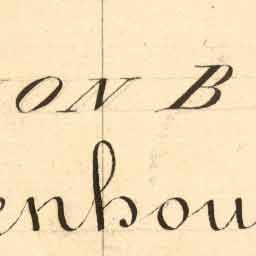 ON B
enhou